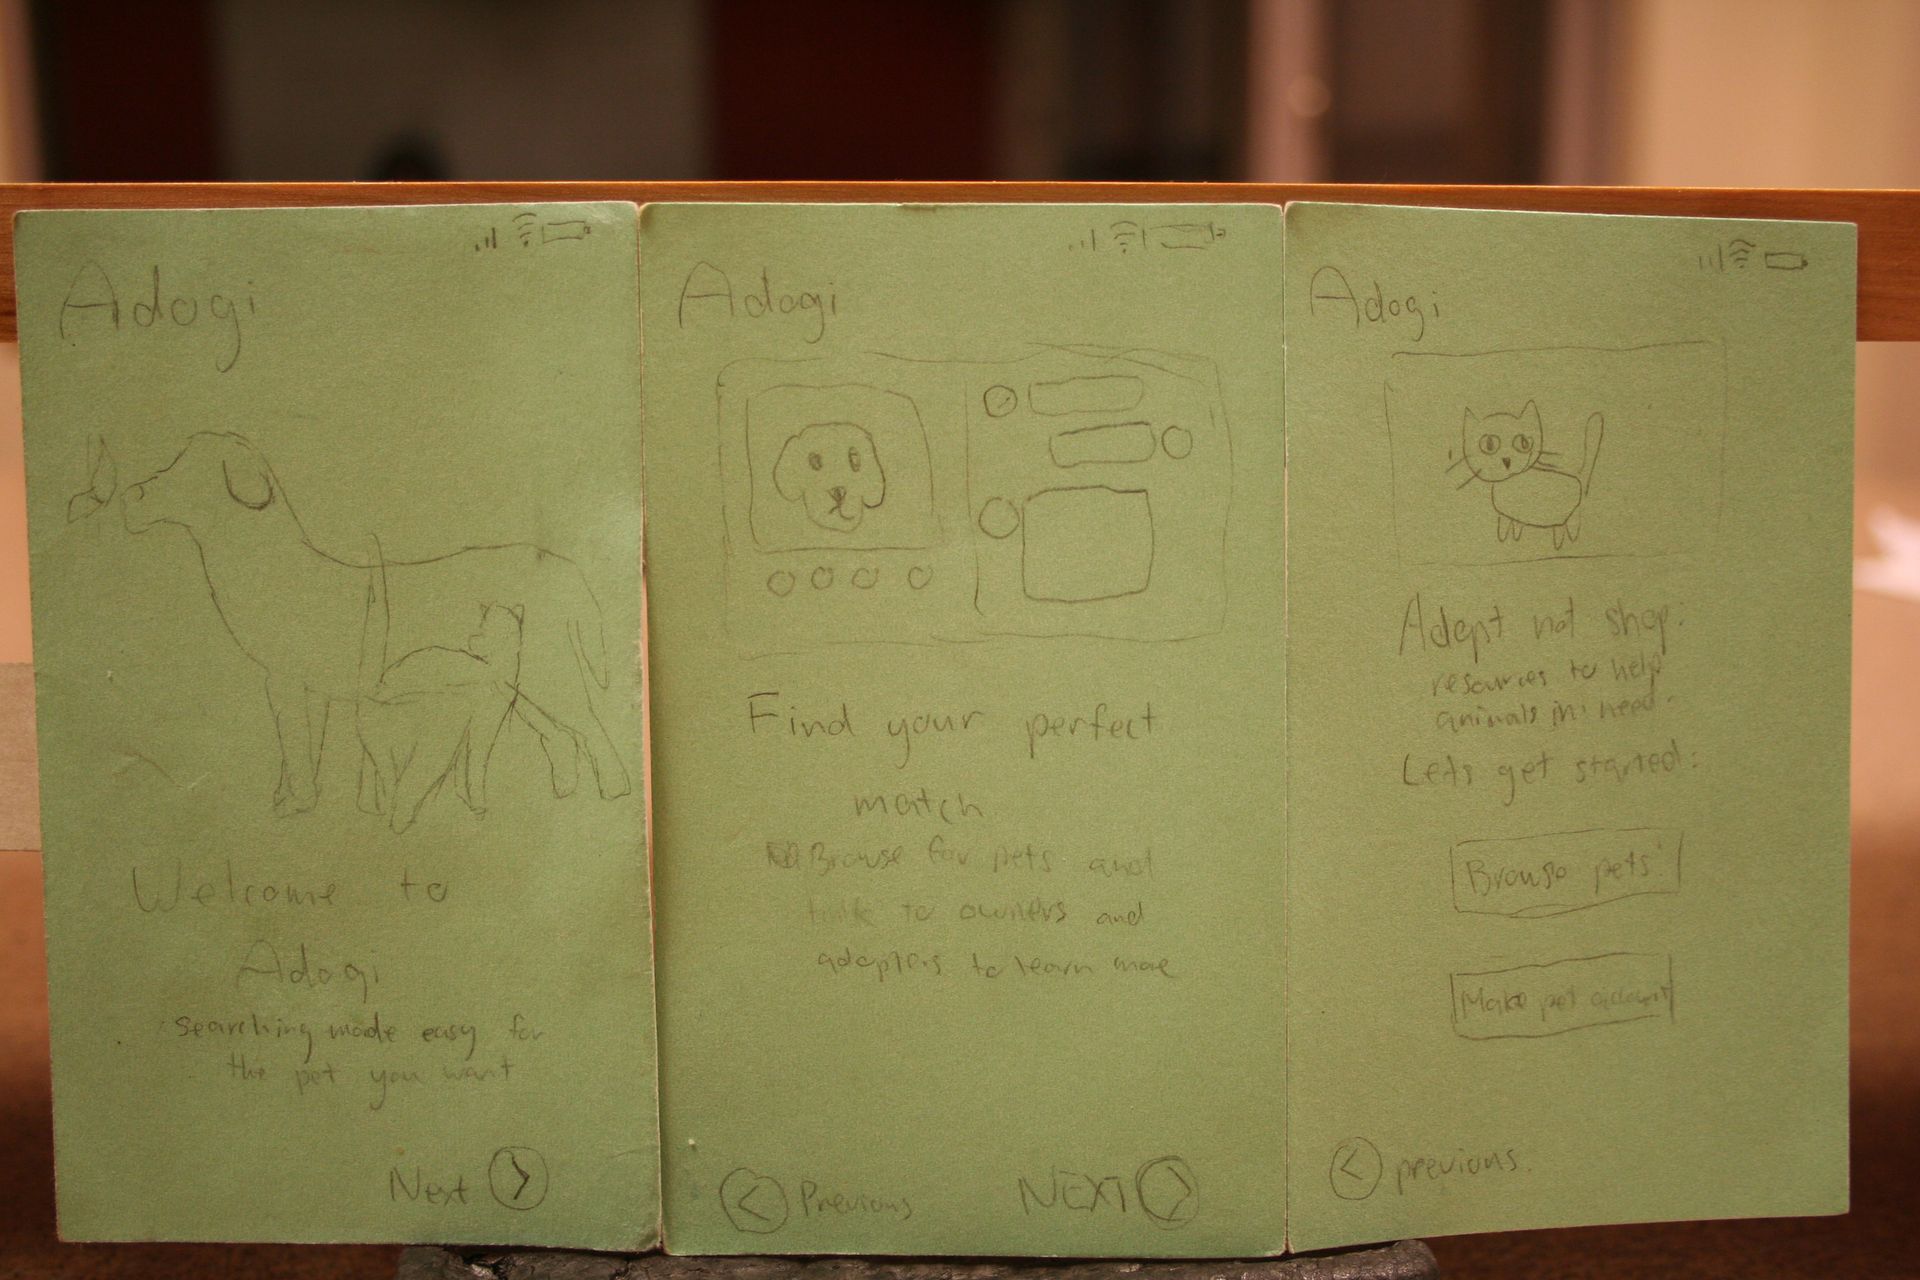 Adogi
Welcome to
Adogi
Searching made easy for
the pet you want
Next
Adogi
Find your perfect
match
Browse for pets and
talk to owners and
adopters to learn more
Previous
NEXT
Adogi
Adopt not shop:
resources to help
animals in need.
Lets get started:
Browse pets
Make pet account
previous.